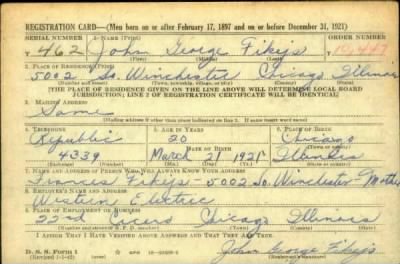 REGISTRATION CARD—(Men born on or after February 17, 1897 and on or before December 31, 1921)
SERIAL NUMBER 1. NAME (Print) ORDER NUMBER
462 John George Fikejs
(First) (Middle) (Last)
2. PLACE OF RESIDENCE (Print)
5002 So. Winchester Chicago Illinois
[THE PLACE OF RESIDENCE GIVEN ON THE LINE ABOVE WILL DETERMINE LOCAL BOARD
JURISDICTION; LINE 2 OF REGISTRATION CERTIFICATE WILL BE IDENTICAL]
3. MAILING ADDRESS
Same
[Mailing address if other than place indicated on line 2. If same insert word same]
4. TELEPHONE 5. AGE IN YEARS 6. PLACE OF BIRTH
Republic 20 Chicago
DATE OF BIRTH
4339 March 21 1921 Illinois
(Exchange) (Number) (Mo.) (Day) (Yr.) (State or country)
7. NAME AND ADDRESS OF PERSON WHO WILL ALWAYS KNOW YOUR ADDRESS
Frances Fikejs - 5002 So. Winchester Mother
8. EMPLOYER'S NAME AND ADDRESS
Western Electric
9. PLACE OF EMPLOYMENT OR BUSINESS
22nd Cicero Chicago Illinois
I AFFIRM THAT I HAVE VERIFIED ABOVE ANSWERS AND THAT THEY ARE TRUE.
D. S. S. Form 1
John George Fikejs